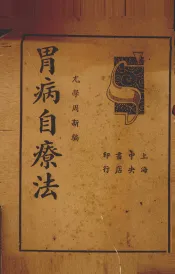 上海
中央書店
印行
尤學周編
胃病自療法